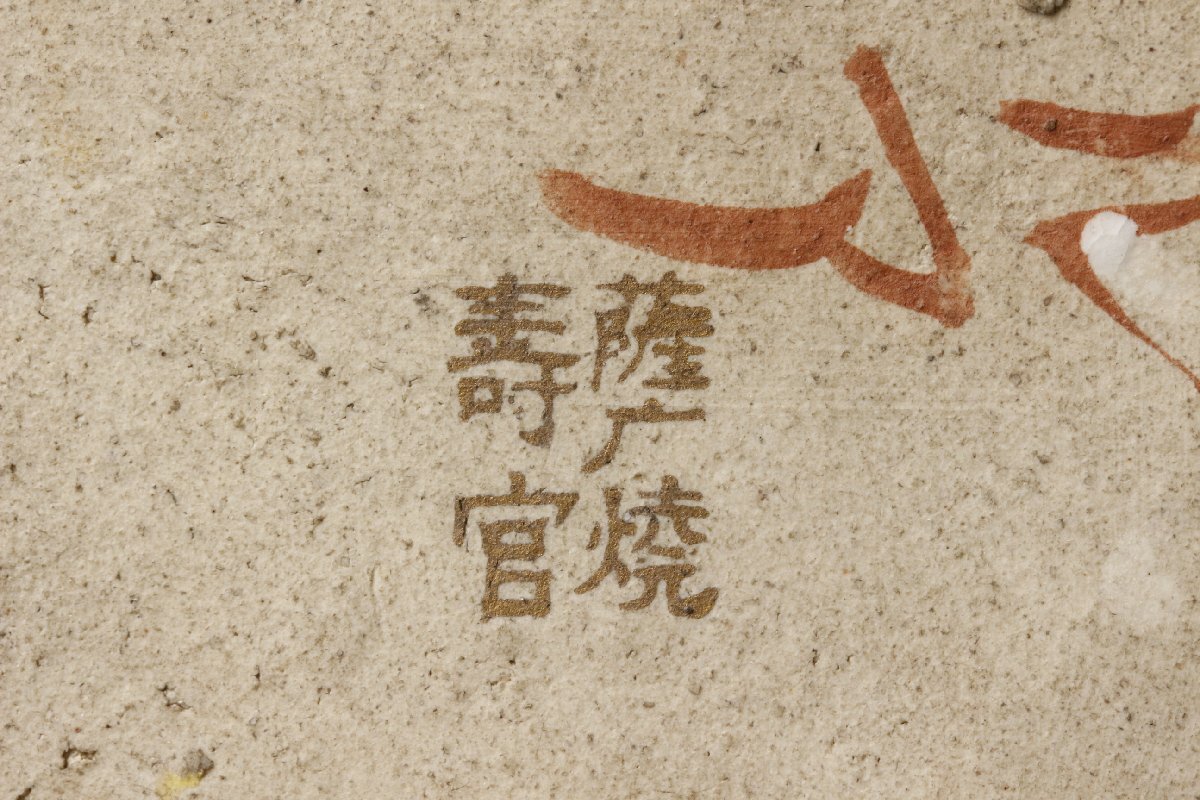 薩广燒
壽官